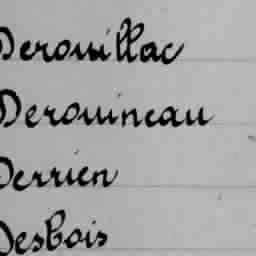 Derouillac
Derouineau
Derrien
Desbois